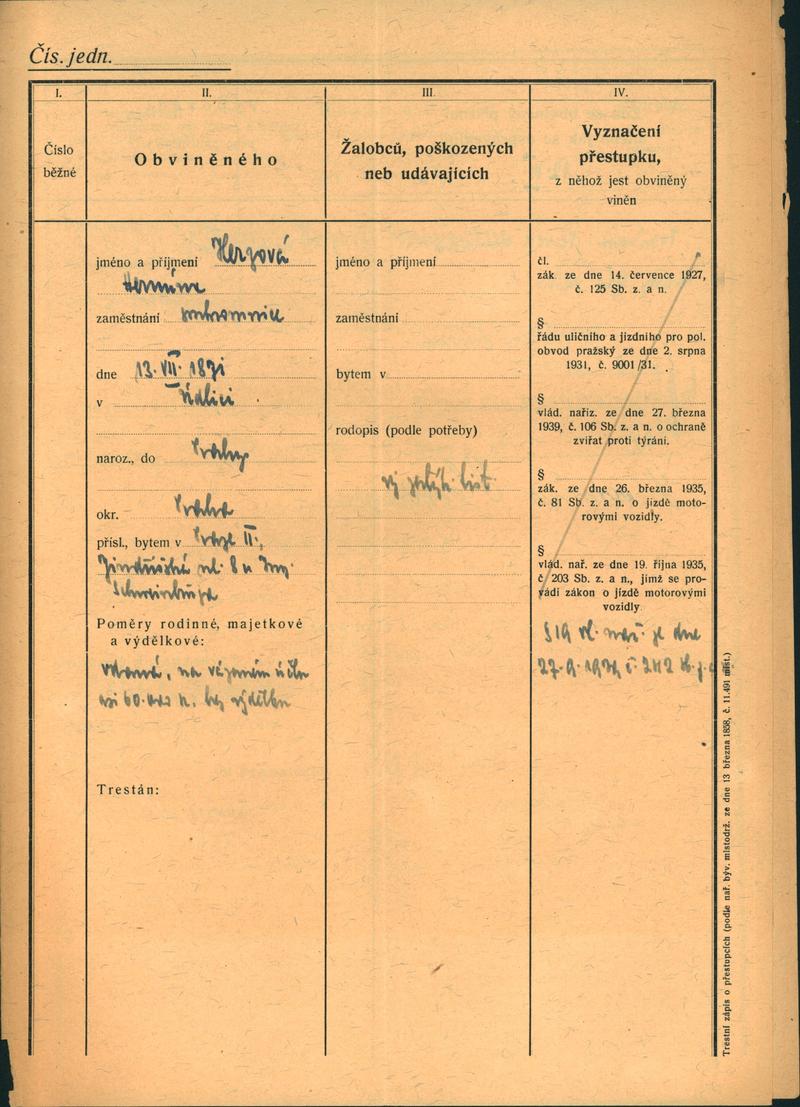 Čís. jedn.
I.
Číslo
běžné
II.
Obviněného
III.
Žalobců, poškozených
neb udávajících
IV.
Vyznačení
přestupku,
z něhož jest obviněný
viněn
jméno a příjmení Herzová
Hermína
zaměstnání
dne 13. VII. 1871
v Údlici
naroz., do Prahy
okr. Praha
přísl., bytem v Praze II.,
Jindřišská ul. 8 u Ing.
Poměry rodinné, majetkové
a výdělkové:
vdova, na vázaném účtu
asi 60.000 K. bez výdělku
Trestán:
jméno a příjmení
zaměstnání
bytem v
rodopis (podle potřeby)
list
čl.
zák. ze dne 14. července 1927,
č. 125 Sb. z. a n.
§
řádu uličního a jízdního pro pol.
obvod pražský ze dne 2. srpna
1931, č. 9001/31.
§
vlád. naříz. ze dne 27. března
1939, č. 106 Sb. z. a n. o ochraně
zvířat proti týrání.
§
zák. ze dne 26. března 1935,
č. 81 Sb. z. a n. o jízdě moto-
rovými vozidly.
§
vlád. nař. ze dne 19. října 1935,
č. 203 Sb. z. a n., jímž se pro-
vádí zákon o jízdě motorovými
vozidly.
§ 19 vl. nař. ze dne
Trestní zápis o přestupcích (podle nař. býv. místodrž. ze dne 13 března 1858, č. 11.491 míst.)